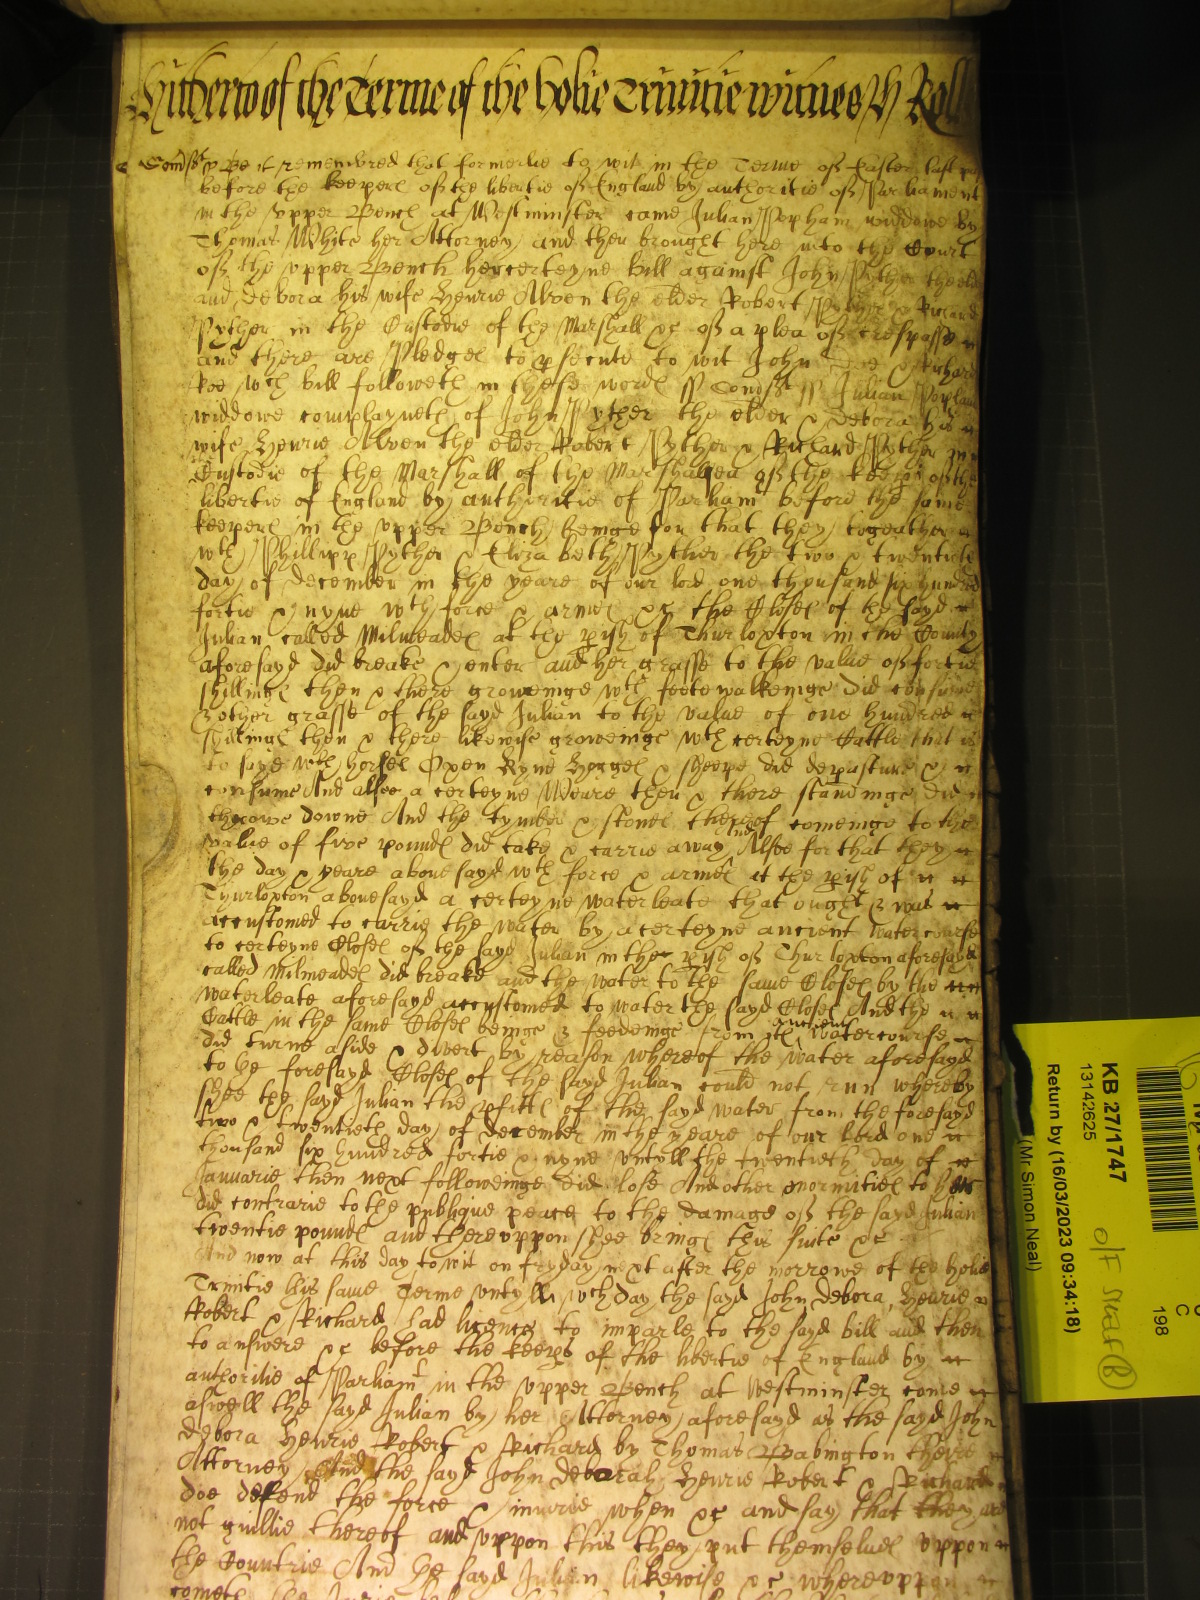 Hitherto of the Terme of the holie Trinitie witnes H Roll
Somst Be it remembred that formerlie to wit in the Terme of Easter last past
before the keepers of the libertie of England by authoritie of Parliament
in the vpper Bench at Westminster came Julian Popham widdowe by
Thomas White her Attorney and then brought here into the Court
of the vpper Bench her certeyne bill against John Pyther the elder
and debora his wife Henrie Alven the elder Robert Pyther & Richard
Pyther in the Custodie of the Marshall &c of a plea of trespasse
and there are Pledges to psecute to wit John Doe & Richard
Roe wch bill followeth in these words ss Somst ss Julian Popham
widdowe complayneth of John Pyther the elder & debora his
wife Henrie Alven the elder Robert Pyther & Richard Pyther in
Custodie of the Marshall of the Marshalsea of the keeps of the
libertie of England by authoritie of Parliam before the same
keepers in the vpper Bench beinge for that they togeather
wth Phillipp Pyther & Elizabeth Pyther the two & twentieth
day of december in the yeare of our lord one thousand six hundred
fortie & nyne wth force & armes &c the Closes of the sayd
Julian called Milmeades at the pish of Thurloxton in the County
aforesayd did breake & enter and her grasse to the value of fortie
shillings then & there groweinge wth feete walkeinge did consume
& other grasse of the sayd Julian to the value of one hundred
shillings then & there likewise groweinge wth certeyne Cattle that is
to saye wth horses Oxen Kyne Hogges & sheepe did depasture &
consume And alsoe a certeyne Weare then & there standinge did
throwe downe And the tymber & stones thereof comeinge to the
value of five pounds did take & carrie away And Alsoe for that they
the day & yeare abouesayd wth force & armes at the pish of
Thurloxton abouesayd a certeyne waterleate that ought & was
accustomed to carrie the water by a certeyne ancient watercourse
to certeyne Closes of the sayd Julian in the pish of Thurloxton aforesayd
called Milmeades did breake and the water to the same Closes by the
waterleate aforesayd accustomed to water the sayd Closes And the
Cattle in the same Closes beinge & feedeinge from its auncient watercourse
did turne aside & divert by reason whereof the water aforesayd
to the foresayd Closes of the sayd Julian could not run whereby
shee the sayd Julian the pfitts of the sayd water from the foresayd
two & twentieth day of december in the yeare of our lord one
thousand six hundred fortie & nyne vntyll the twentieth day of
Januarie then next followeinge did lose And other enormities to her
did contrarie to the publique peace to the damage of the sayd Julian
twentie pounds and therevppon shee brings this suite &c
And now at this day to wit on fryday next after the morrowe of the holie
Trinitie this same Terme vntyll wch day the sayd John debora Henrie
Robert & Richard had licence to imparle to the sayd bill and then
to answere &c before the keeps of the libertie of England by
authoritie of Parliamt in the vpper Bench at Westminster come
aswell the sayd Julian by her Attorney aforesayd as the sayd John
debora Henrie Robert & Richard by Thomas Babington theire
Attorney And the sayd John deborah Henrie Robert & Richard
doe defend the force & iniurie when &c and say that they are
not guiltie thereof and vppon this they put themselues vppon
the Countrie And the sayd Julian likewise &c wherevppon
KB 27/1747
13142625
Return by (16/03/2023 09:34:18)
(Mr Simon Neal)
198
C